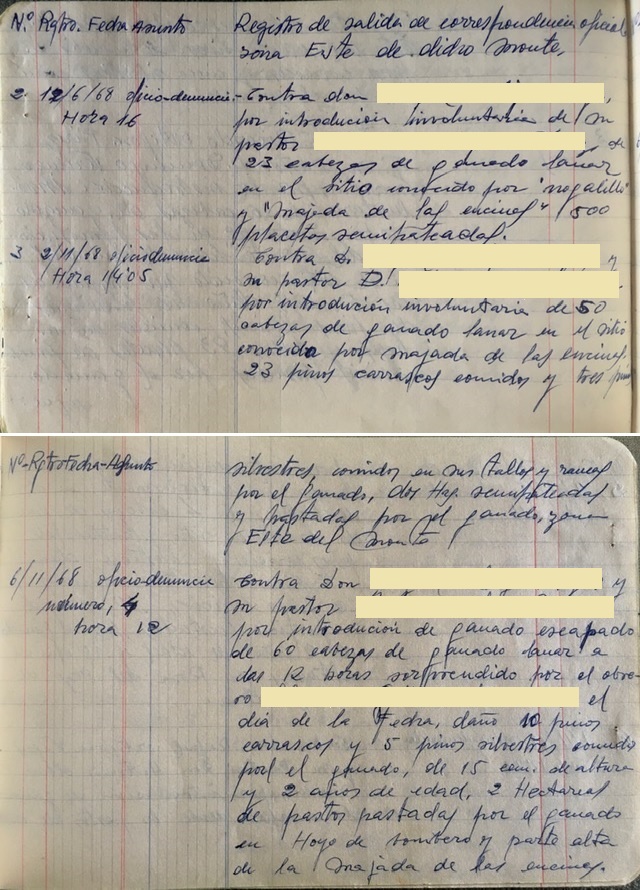 Nº Rgtro. Fecha Asunto
Registro de salida de correspondencia oficial
zona Este de dicho monte.
2 12/6/68 oficio-denuncia-
Hora 16
Contra don
por introdución involuntaria de su
pastor de
23 cabezas de ganado lanar
en el sitio conocido por "nogalillo
y "Majada de las encinas" 1500
placetas semipateadas.
3 2/11/68 oficio denuncia
Hora 14'05
Contra D. y
su pastor D.
por introdución involuntaria de 50
cabezas de ganado lanar en el sitio
conocido por majada de las encinas,
23 pinos carrascos comidos y tres pinos
Nº-Rgtro Fecha-Asunto
silvestres, comidos en sus tallos y ramas
por el ganado, dos Has. semipateadas
y pastadas por el ganado, zona
Este del Monte
6/11/68 oficio-denuncia
número, 4
hora 12
Contra Don y
su pastor
por introdución de ganado escapado
de 60 cabezas de ganado lanar a
las 12 horas sorprendido por el obre-
ro el
dia de la Fecha, daño 10 pinos
carrascos y 5 pinos silvestres comido
por el ganado, de 15 cm. de altura
y 2 años de edad, 2 Hectareas
de pastos pastadas por el ganado
en Hoyo de sombrero y parte alta
de la Majada de las encinas.